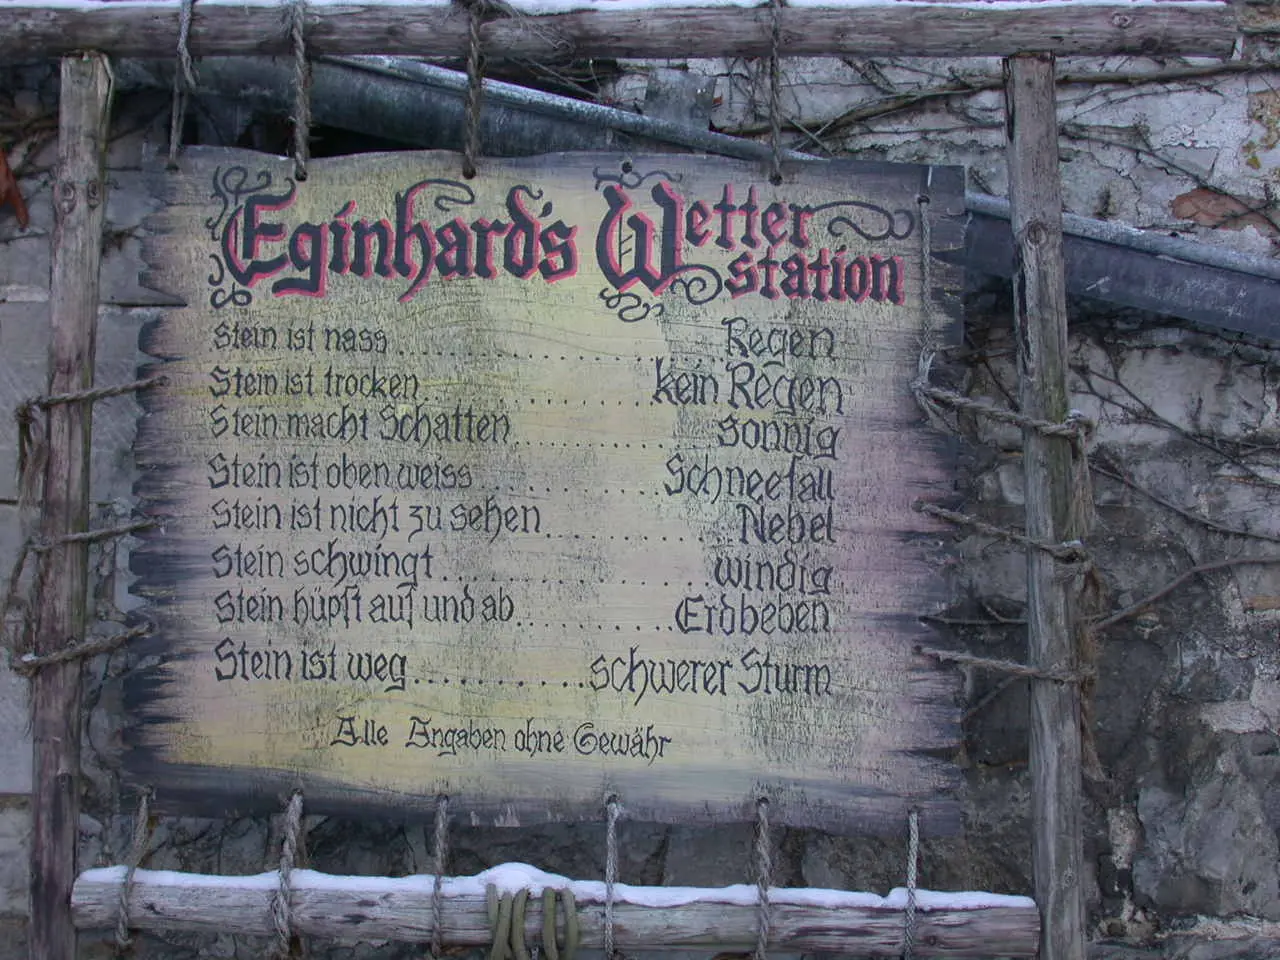 Eginhard's Wetter
station
Stein ist nass.......................Regen
Stein ist trocken..................kein Regen
Stein macht Schatten..................sonnig
Stein ist oben weiss..............Schneefall
Stein ist nicht zu sehen................Nebel
Stein schwingt....................windig
Stein hüpft auf und ab...........Erdbeben
Stein ist weg...........schwerer Sturm
Alle Angaben ohne Gewähr